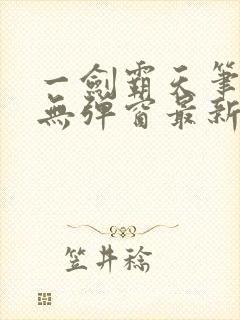 一劍霸天筆
無彈窗最新
笠井稔